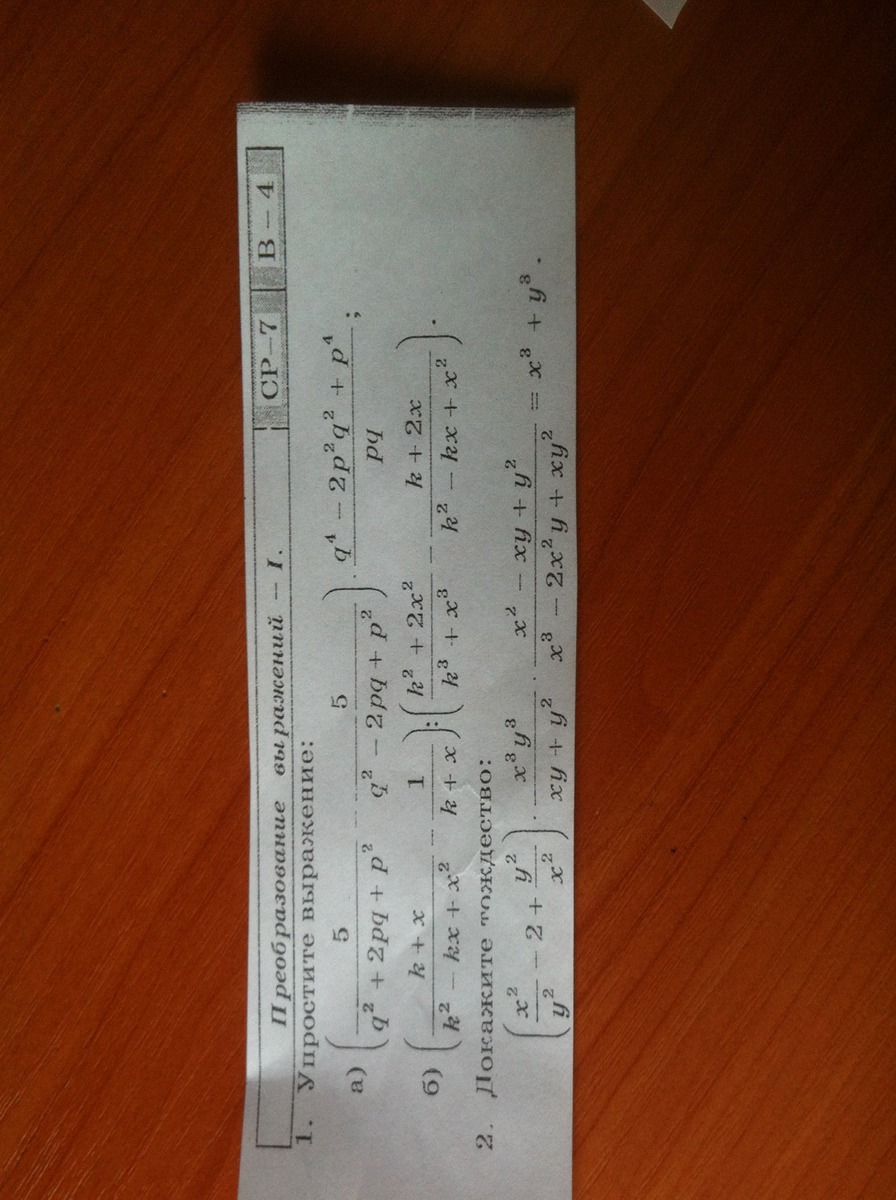 Преобразование выражений – I. СР–7 В – 4
1. Упростите выражение:
а) (5/(q² + 2pq + p²) − 5/(q² − 2pq + p²)) · (q⁴ − 2p²q² + p⁴)/(pq);
б) ((k + x)/(k² − kx + x²) − 1/(k + x)) : ((k² + 2x²)/(k³ + x³) − (k + 2x)/(k² − kx + x²)).
2. Докажите тождество:
(x²/y² − 2 + y²/x²) · (x³y³)/(xy + y²) · (x² − xy + y²)/(x³ − 2x²y + xy²) = x³ + y³.